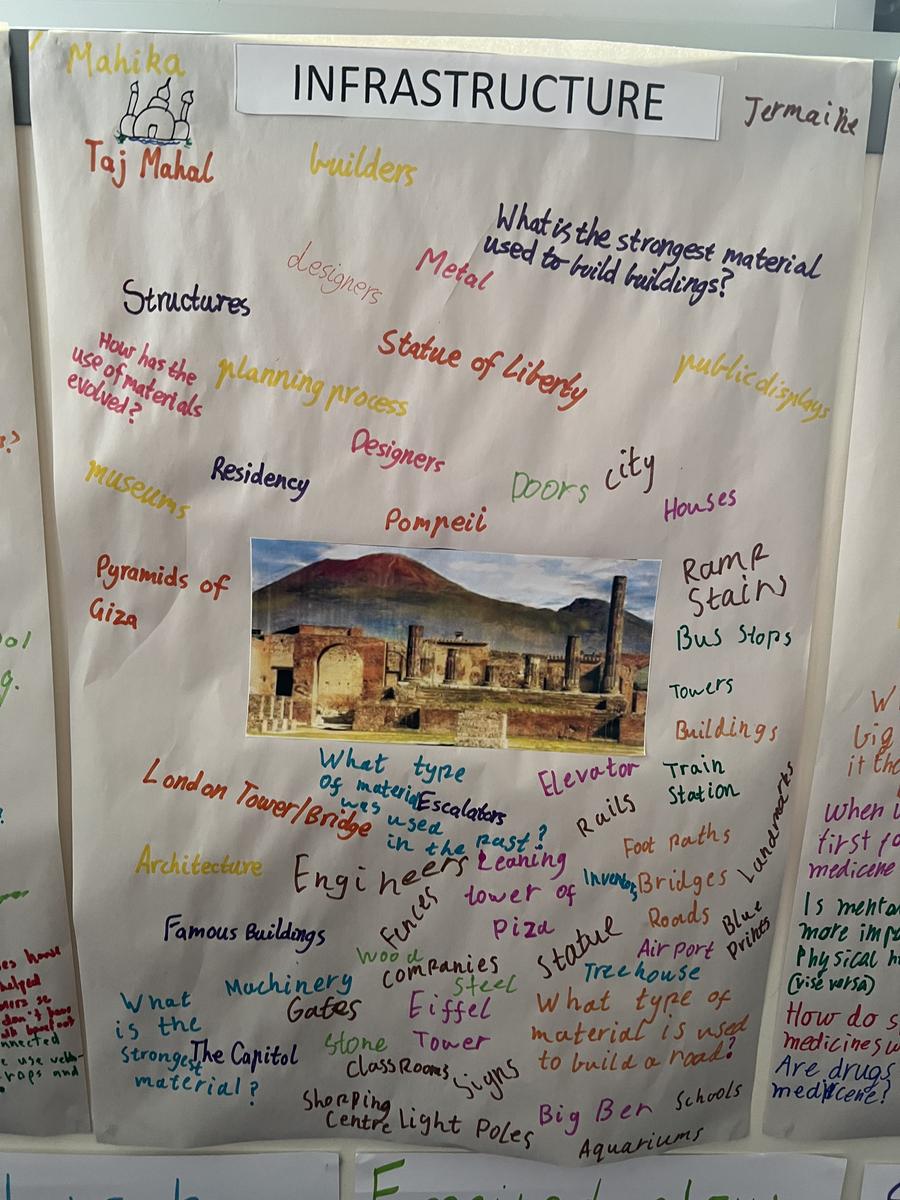 Mahika
INFRASTRUCTURE
Jermaine
Taj Mahal
builders
What is the strongest material
used to build buildings?
designers
Metal
Structures
How has the
use of materials
evolved?
planning process
Statue of Liberty
public displays
museums
Residency
Designers
Doors
city
Houses
Pompeii
Pyramids of
Giza
Ramp
Stairs
Bus Stops
Towers
Buildings
Train
Station
London Tower/Bridge
What type
of material
was used
in the past?
Escalators
Elevator
Rails
Foot paths
Landmarks
Architecture
Engineers
Leaning
tower of
Piza
Bridges
Famous Buildings
Fences
Statue
Roads
Blue
Prints
Air port
Wood
Companies
Steel
Treehouse
Machinery
Gates
Eiffel
Tower
What type of
material is used
to build a road?
What
is the
strongest
material?
The Capitol
Stone
Class Rooms
Signs
Shopping
Centre
Light Poles
Big Ben
Schools
Aquariums
big
it the
When
first
medicene
Is
more
Physical
(vise versa)
How do
medicines
Are drugs
medicene?
helped
use
and